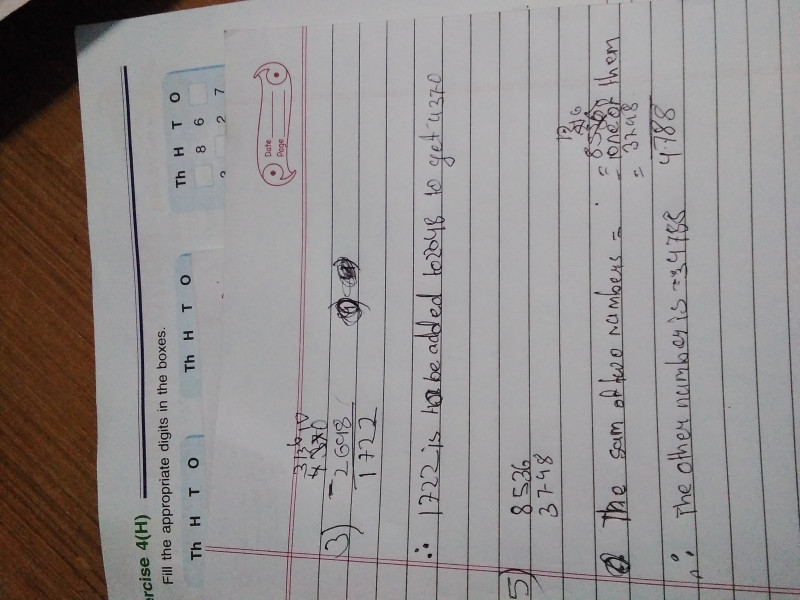 Exercise 4(H)
Fill the appropriate digits in the boxes.
Th H T O
Th H T O
Th H T O
8 6
2 7
Date
Page
3 13 6 10
4 3 7 0
3) - 2648
1722
∴ 1722 is to be added to 2648 to get 4370
5) 8536
3748
The sum of two numbers = = 8536
- one of them
= 3748
4788
∴ The other number is = 34788